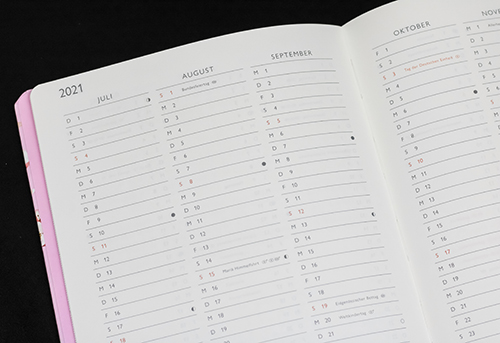 2021
JULI
D 1
F 2
S 3
S 4
M 5
D 6
M 7
D 8
F 9
S 10
S 11
M 12
D 13
M 14
D 15
F 16
S 17
S 18
AUGUST
S 1 Bundesfeiertag CH
M 2
D 3
M 4
D 5
F 6
S 7
S 8
M 9
D 10
M 11
D 12
F 13
S 14
S 15 Mariä Himmelfahrt
M 16
D 17
M 18
D 19
SEPTEMBER
M 1
D 2
F 3
S 4
S 5
M 6
D 7
M 8
D 9
F 10
S 11
S 12
M 13
D 14
M 15
D 16
F 17
S 18
S 19 Eidgenössischer Bettag CH
M 20 Weltkindertag
D 21
OKTOBER
F 1
S 2
S 3 Tag der Deutschen Einheit D
M 4
D 5
M 6
D 7
F 8
S 9
S 10
M 11
D 12
M 13
D 14
F 15
S 16
S 17
M 18
D 19
M 20
D 21
F 22
S 23
NOV
M 1
D 2
M 3
D 4
F 5
S 6